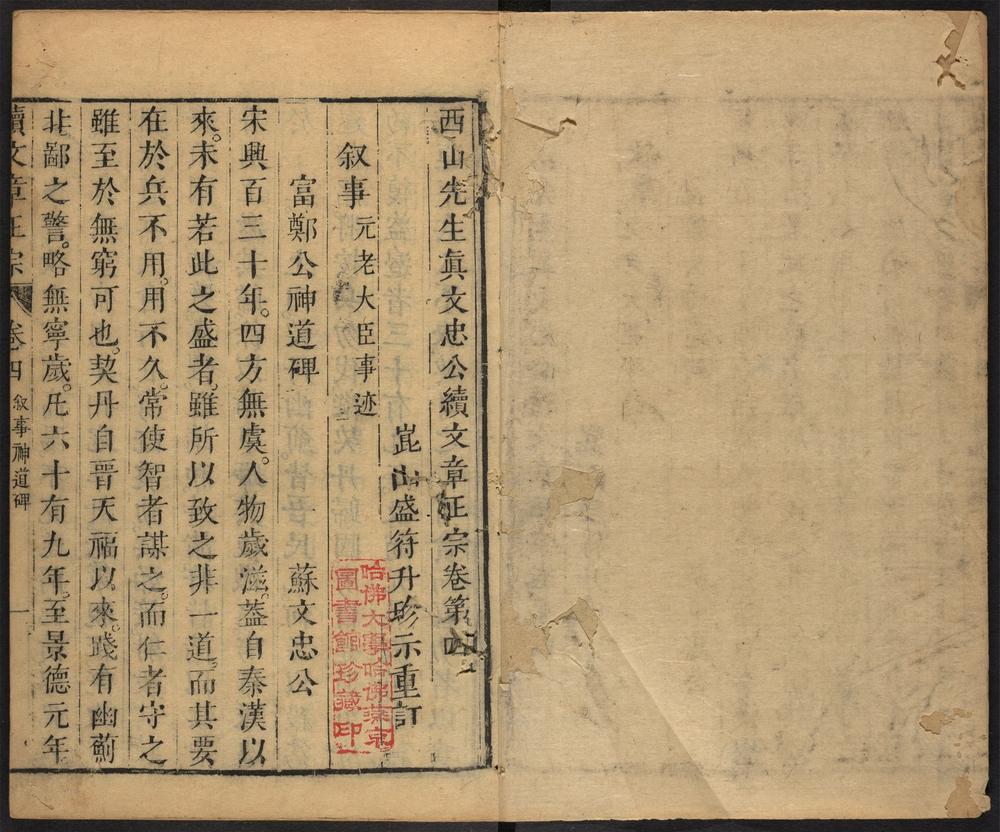 西山先生眞文忠公續文章正宗卷第四
崑山盛符升珍示重訂
叙事元老大臣事迹
富鄭公神道碑 蘇文忠公
宋興百三十年。四方無虞。人物歲滋。葢自秦漢以
來。未有若此之盛者。雖所以致之非一道。而其要
在於兵不用。用不久。常使智者謀之。而仁者守之
雖至於無窮可也。契丹自晉天福以來。踐有幽薊
北鄙之警。略無寧歲。凡六十有九年。至景德元年
續文章正宗 卷四 叙事神道碑 一
哈佛大學哈佛燕京
圖書館珍藏印